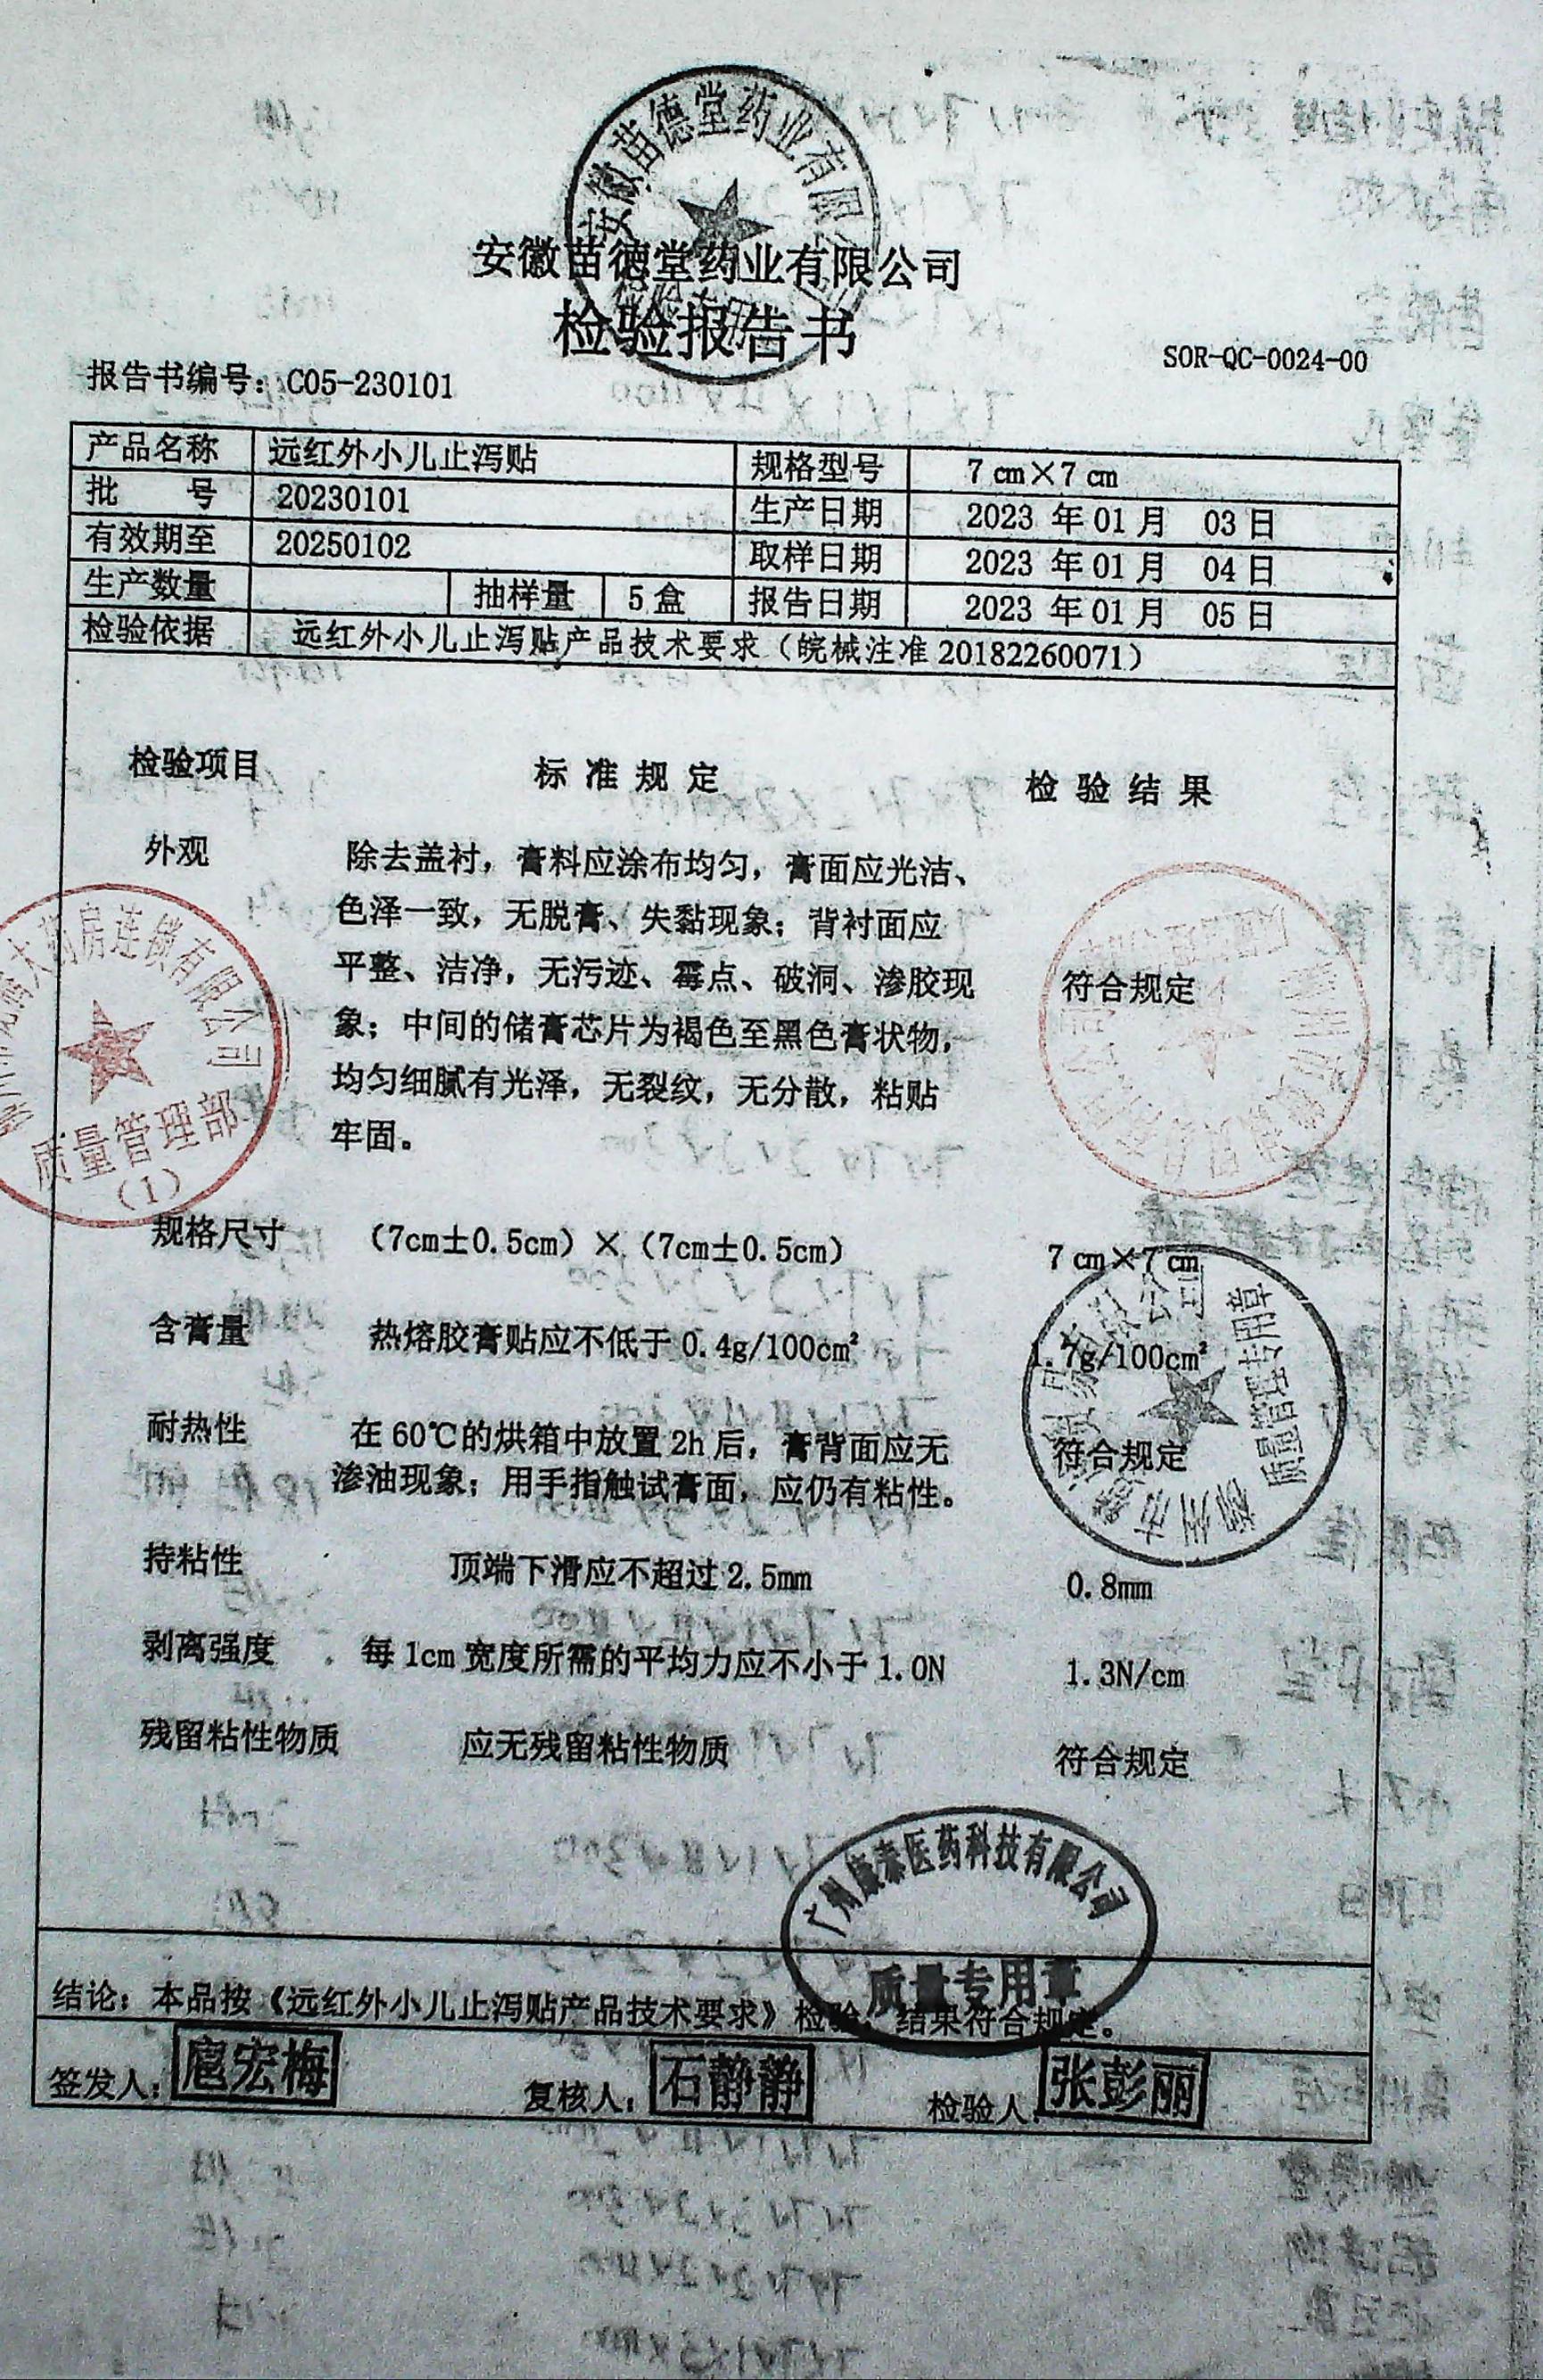 安徽苗德堂药业有限
安徽苗德堂药业有限公司
检验报告书
报告书编号：C05-230101
SOR-QC-0024-00
产品名称 远红外小儿止泻贴 规格型号 7㎝×7㎝
批 号 20230101 生产日期 2023 年01月 03日
有效期至 20250102 取样日期 2023 年01月 04日
生产数量 抽样量 5盒 报告日期 2023 年01月 05日
检验依据 远红外小儿止泻贴产品技术要求（皖械注准20182260071）
检验项目 标准规定 检验结果
外观 除去盖衬，膏料应涂布均匀，膏面应光洁、
色泽一致，无脱膏、失黏现象；背衬面应
平整、洁净，无污迹、霉点、破洞、渗胶现 符合规定
象；中间的储膏芯片为褐色至黑色膏状物，
均匀细腻有光泽，无裂纹，无分散，粘贴
牢固。
大药房连锁有限公司
质量管理部
（1）
规格尺寸 （7cm±0.5cm）×（7cm±0.5cm） 7㎝×7㎝
含膏量 热熔胶膏贴应不低于0.4g/100cm² 1.7g/100cm²
耐热性 在60℃的烘箱中放置2h后，膏背面应无 符合规定
渗油现象；用手指触试膏面，应仍有粘性。
质量管理专用章
持粘性 顶端下滑应不超过2.5mm 0.8mm
剥离强度 每1cm宽度所需的平均力应不小于1.0N 1.3N/cm
残留粘性物质 应无残留粘性物质 符合规定
广州康泰医药科技有限公司
质量专用章
结论：本品按《远红外小儿止泻贴产品技术要求》检验，结果符合规定。
签发人：扈宏梅 复核人：石静静 检验人：张彭丽